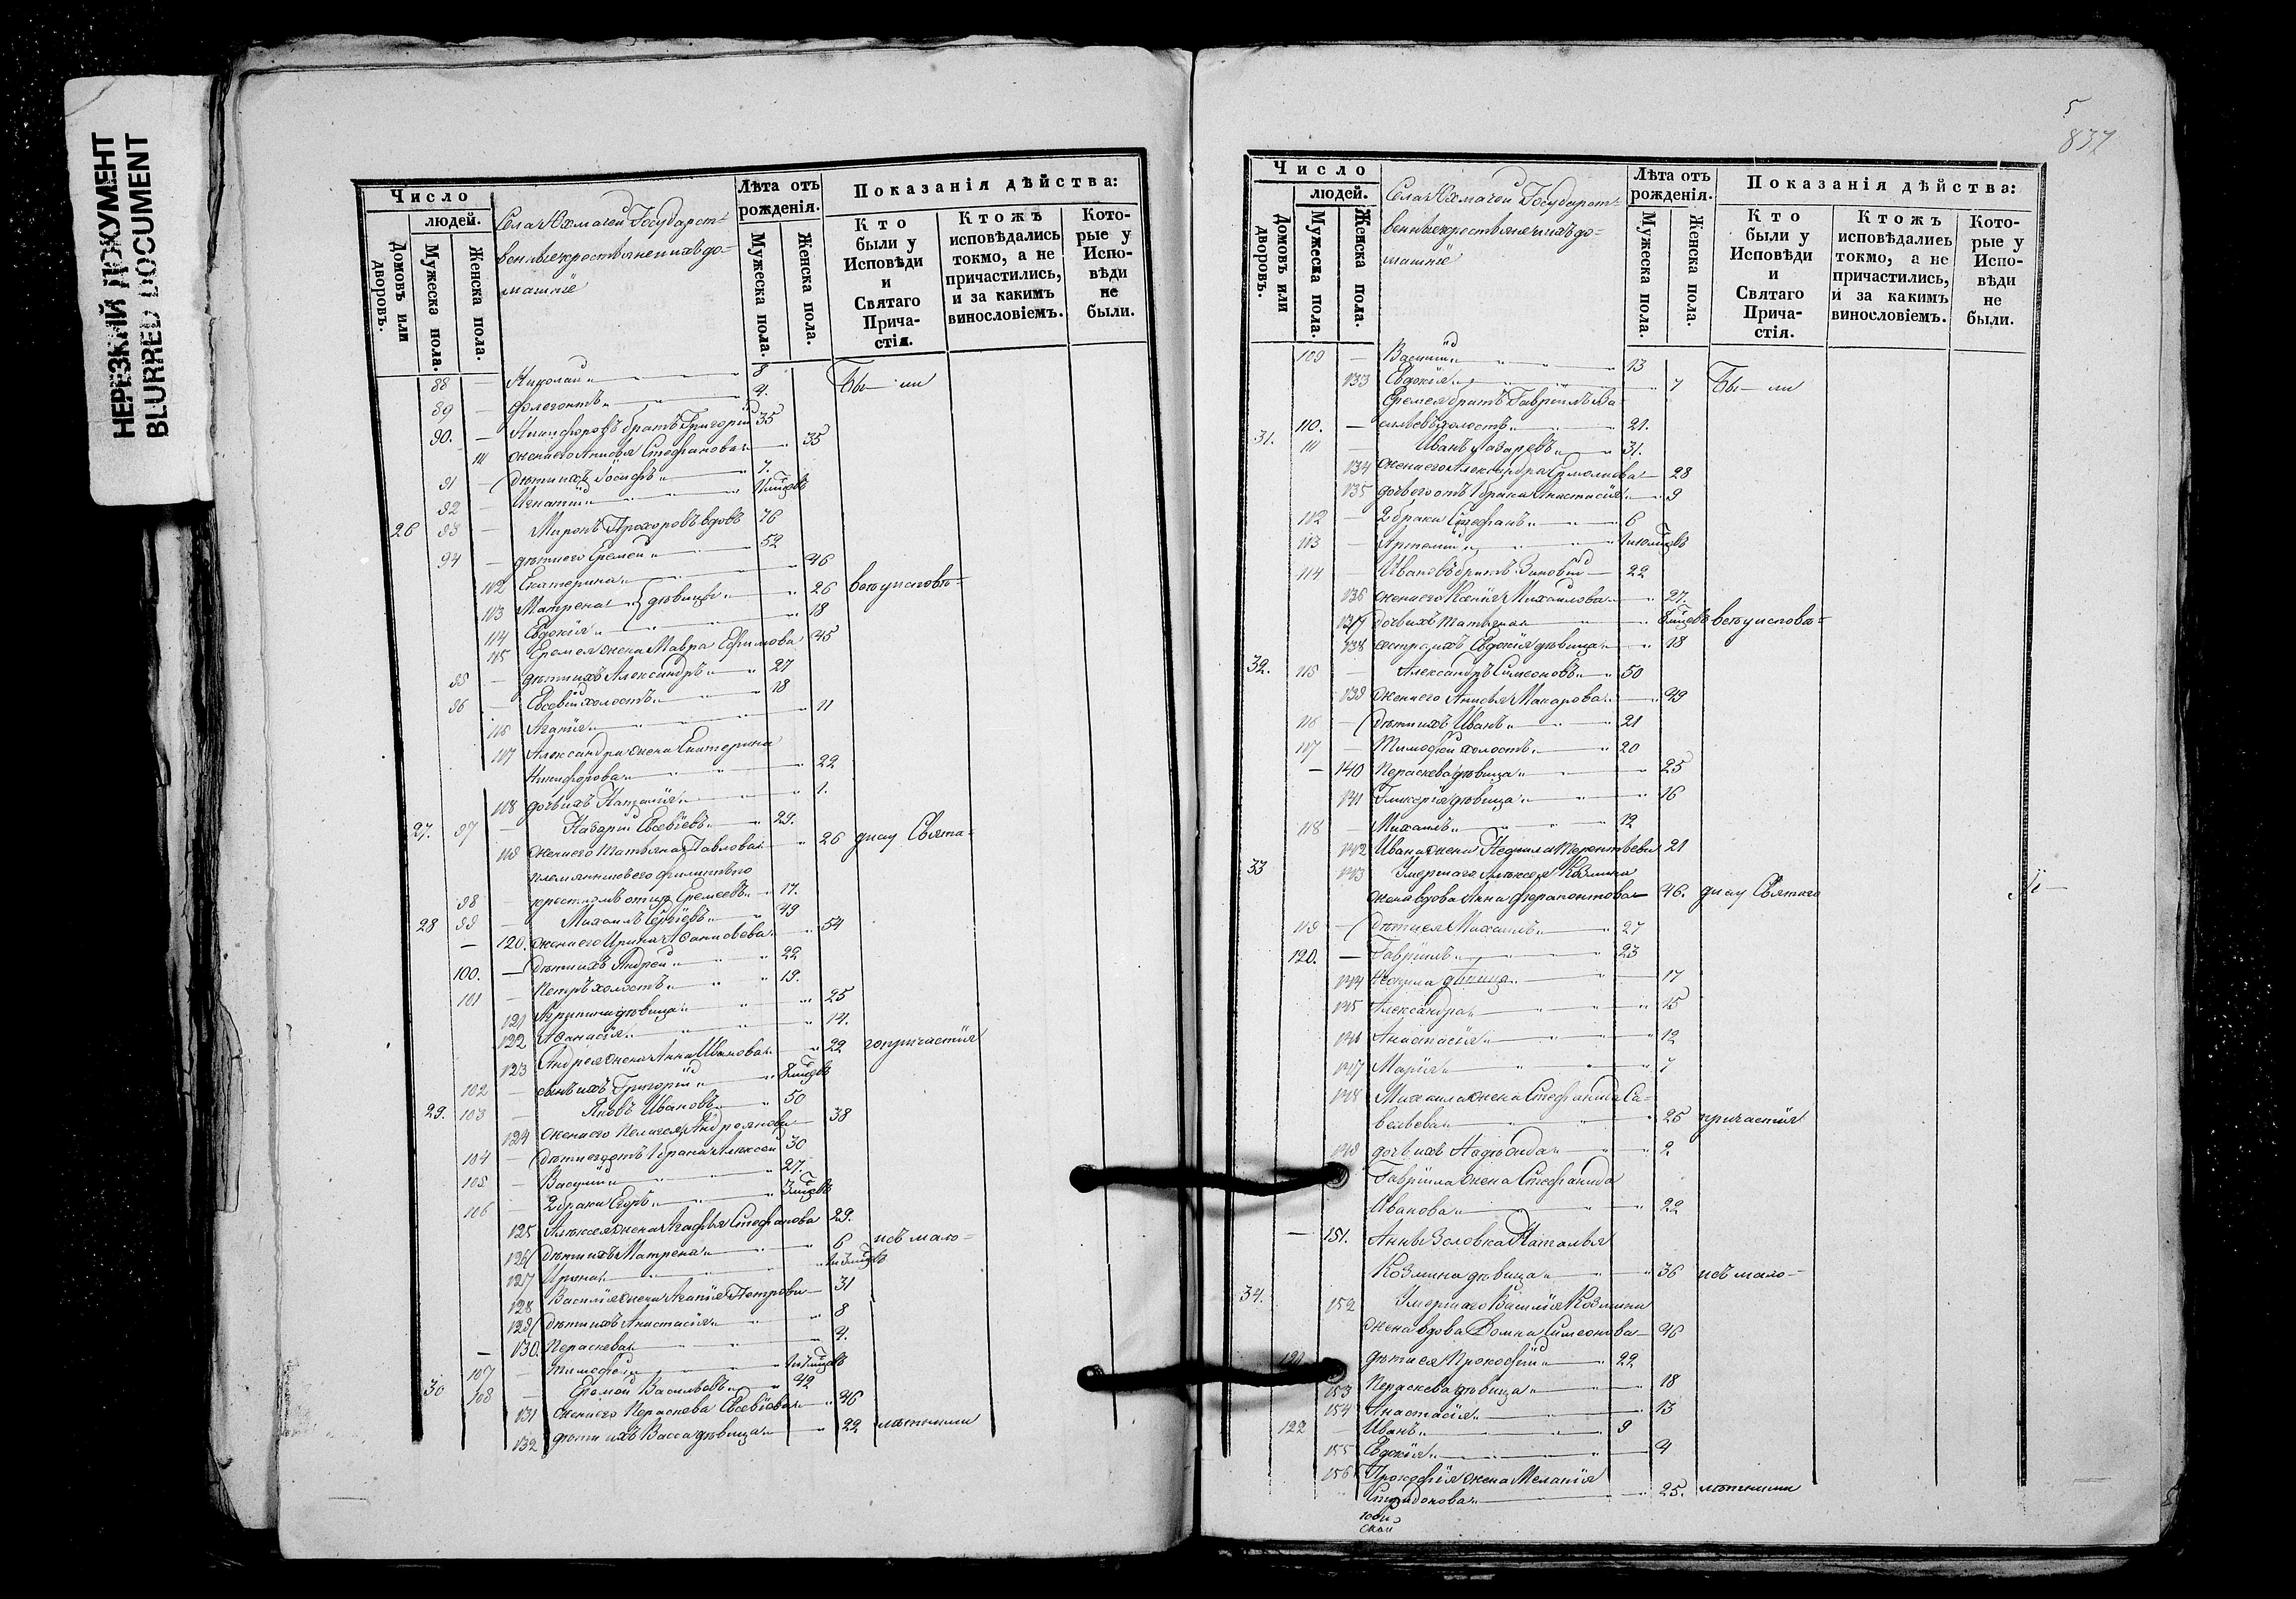 НЕРЕЗКИЙ ДОКУМЕНТ
BLURRED DOCUMENT
Число
людей.
Домовъ или дворовъ.
Мужеска пола.
Женска пола.
Села Юхмачей Государст-
венные крестьяне и ихъ до-
машніе
Лѣта отъ рожденія.
Мужеска пола.
Женска пола.
Показанія дѣйства:
Кто были у Исповѣди и Святаго Прича-стія.
Ктожъ исповѣдались токмо, а не причастились, и за какимъ винословіемъ.
Кото-рые у Испо-вѣди не были.
88 — Николай 8 Бы— ли
89 — Флегонтъ 4.
90. — Никифоровъ братъ Григорій 35
111 жена его Анисья Стефанова 35
91 — дѣти ихъ Іосифъ 7.
92 — Игнатій
26 93 — Миронъ Прохоровъ вдовъ 76
94 — дѣти его Еремей 52
112 Екатерина 46
113 Матрена дѣвицы 26 все у исповѣ=
114 Евдокія 18
115 Еремея жена Мавра Ефимова 45
95 — дѣти ихъ Александръ 27
96 — Евсевій холостъ 18
116 Агапія 11
117 Александра жена Екатерина
Никифорова 22
118 дочь ихъ Наталія 1.
27. 97 — Назарій Евсевіевъ 29.
119 жена его Татьяна Павлова 26 ди и у Свята=
племянникъ его Филиппъ по
98 — крестномъ отцѣ Еремеевъ 17.
28 99 — Михаилъ 49
— 120. жена его Ирина 54
100. — дѣти ихъ Андрей 22
101 — Петръ холостъ 19.
121 дѣвица 25
122 Афанасія 14.
123 Андрея жена Анна Иванова 22 го причастія
102 — сынъ ихъ Григорій
29. 103 — Яковъ Ивановъ 50
124 жена его Пелагея Андреянова 38
104 — дѣти его отъ 1 брака Алексей 30
105 — Василій 27.
106 — 2 брака Егоръ
125 Алексея жена Агафья Стефанова 29.
126 дѣти ихъ Матрена 6 исъ мало=
127 Ирина
128 Василія жена Агапія Петрова 31
129 дѣти ихъ Анастасія 8
— 130. Пераскева 4.
107 — Тимофей
30 108 — Еремей Васильевъ 42
131 жена его Пераскева Евсевіева 46
132 дѣти ихъ Васса дѣвица 22 лѣтними
5
837
Число
людей.
Домовъ или дворовъ.
Мужеска пола.
Женска пола.
Села Юхмачей Государст-
венные крестьяне и ихъ до=
машніе
Лѣта отъ рожденія.
Мужеска пола.
Женска пола.
Показанія дѣйства:
Кто были у Исповѣди и Святаго Прича-стія.
Ктожъ исповѣдались токмо, а не причастились, и за какимъ винословіемъ.
Кото-рые у Испо-вѣди не были.
109 — Василій 13
133 Евдокія 7 Бы— ли
Еремея братъ Гавриилъ Ва=
110. — сильевъ холостъ 21.
31. 111 — Иванъ Лазаревъ 31.
134 жена его Александра Ермолаева 28
135 дочь его отъ 1 брака Анастасія 9
112 — 2 брака Стефанъ 6
113 — Артемій
114 — Ивановъ братъ Зиновій 22
136 жена его Ксенія Михаилова 27.
137 дочь ихъ Татьяна все у исповѣ=
138 сестра ихъ Евдокія дѣвица 18
32. 115 — Александръ Симеоновъ 50
139 жена его Анисья Макарова 49
116 — дѣти ихъ Иванъ 21
117 — Тимофей холостъ 20
— 140 Пераскева дѣвица 25
141 Гликерія дѣвица 16
118 — Михаилъ 12
142 Ивана жена Неонила Терентьева 21
33 143 Умершаго Алексея Козмина
жена вдова Анна Ферапонтова 46. ди и у Святаго
119 — дѣти ея Михаилъ 27
120. — Гавріилъ 23
144 Неонила дѣвица 17
145 Александра 15
146 Анастасія 12
147 Марія 7
148 Михаила жена Стефанида Са=
вельева 25 причастія
149 дочь ихъ Надежда 2
Гавріила жена Стефанида
Иванова 22
— 151. Анны золовка Наталья
Козмина дѣвица 36 исъ мало=
34. 152 Умершаго Василія Козмина
жена вдова Домна Симеонова 46
121 дѣти ея Прокофій 22
153 Пераскева дѣвица 18
154 Анастасія 13
122 — Иванъ 9
155 Евдокія 4
156 Прокофія жена Меланія
Спиридонова 25. лѣтними